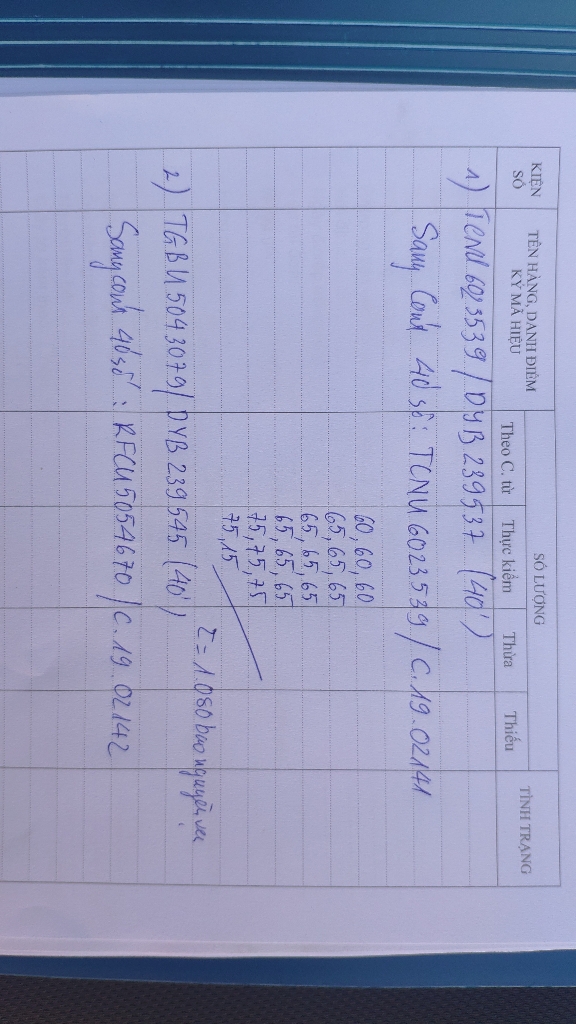 KIỆN SỐ
TÊN HÀNG, DANH ĐIỂM
KÝ MÃ HIỆU
SỐ LƯỢNG
Theo C. từ
Thực kiểm
Thừa
Thiếu
TÌNH TRẠNG
1) TCNU 6023539 / DYB 239537 (40')
Sang Cont 40' số: TCNU 6023539 / C.19.02141
60, 60, 60
65, 65, 65
65, 65, 65
65, 65, 65
75, 75, 75
75, 15
Σ = 1.080 bao nguyên vẹn.
2) TGBU 5043079 / DYB 239545 (40')
Sang cont 40' số: RFCU 5054670 / C.19.02142